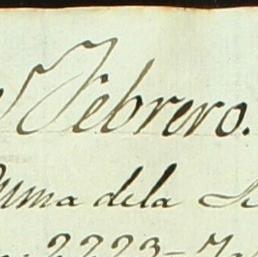 Febrero.
Suma dela
2223=